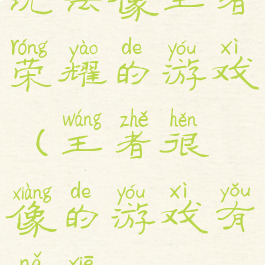 玩法像王者
róng yào de yóu xì
荣耀的游戏
wáng zhě hěn
（王者很
xiàng de yóu xì yǒu
像的游戏有
nǎ xiē